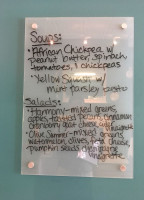 Soups:
• African Chickpea w/
peanut butter, spinach,
tomatoes, & chickpeas
• Yellow Squash w/
mint parsley pesto
Salads:
• Harmony - mixed greens,
apples, toasted pecans, cinnamon
cranberry goat cheese, vinaigrette
• Olive Summer - mixed greens,
watermelon, olives, feta cheese,
pumpkin seeds, champagne
vinaigrette